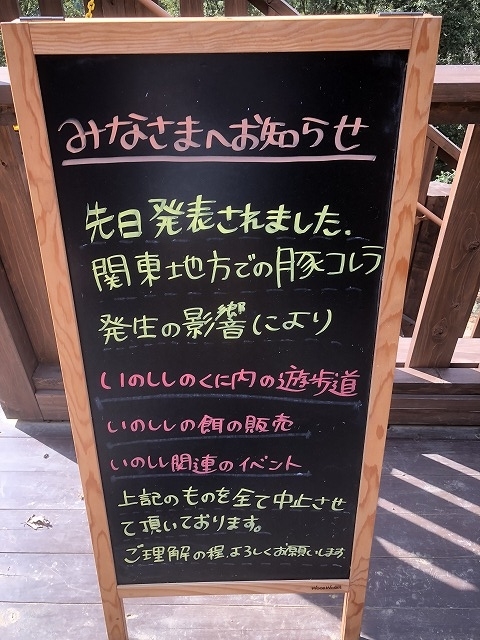 みなさまへお知らせ
先日発表されました.
関東地方での豚コレラ
発生の影響により
いのししのくに内の遊歩道
いのししの餌の販売
いのしし関連のイベント
上記のものを全て中止させ
て頂いております。
ご理解の程、よろしくお願いします